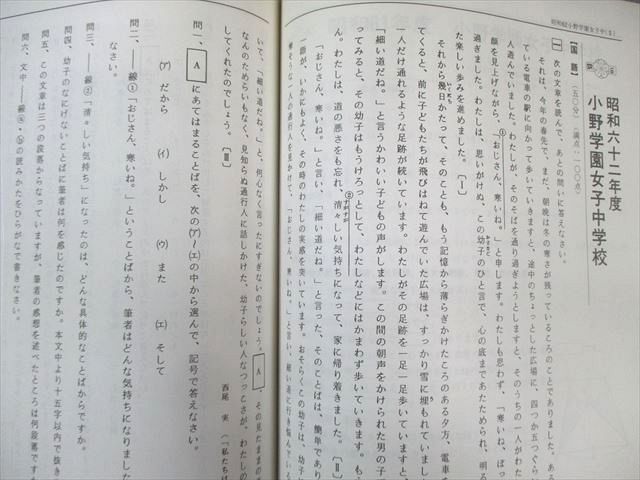 昭和62小野学園女子中(1)
昭和六十二年度
小野学園女子中学校
【国語】(五〇分)〈満点:一〇〇点〉
一 次の文章を読んで、あとの問いに答えなさい。
それは、今年の春先で、まだ、朝晩は冬の寒さが残っているころのことでありました。ある
ている電車の駅に向かって歩いていきますと、途中のちょっとした広場に、四つか五つぐらい
人遊んでいました。わたしが、そのそばを通り過ぎようとしますと、そのうちの一人がわた
顔を見上げながら、①「おじさん、寒いね。」と申します。わたしも思わず、「寒いね、ぼっ
過ぎました。わたしは、思いがけぬ、この幼子のひと言で、心の底まであたためられ、明る
た楽しい歩みを進めました。〔Ⅰ〕
それから幾日かたって、そのことも、もう記憶から薄らぎかけたころのある夕方、電車
てくると、前に子どもたちが飛びはねて遊んでいた広場は、すっかり雪に埋もれていまし
一人だけ通れるような足跡が続いています。わたしがその足跡を一足一足歩いていますと、
「細い道だね。」と言うかわいい子どもの声がします。この間の朝声をかけられた男の子
ってみると、その幼子はもうけろっとして、わたしなどにはかまわず歩いていきます。も
ん。わたしは、道の悪さをも忘れ、②清々しい気持ちになって、家に帰り着きました。〔Ⅱ〕
「おじさん、寒いね。」と言い、「細い道だね。」と言った、そのことばは、簡単であり
一面が、いかにもよく、その時のわたしの実感を突いています。おそらくこの幼子は、前
寒そうな一人の通行人を見かけて、「おじさん、寒いね。」と言い、細い道に行き悩んでいる
いて、「細い道だね。」と、何心なく言ったにすぎないのでしょう。A、その見たままの
なんのためらいもなく、見知らぬ通行人に話しかけた、幼子らしい人なつっこさが、わたしの
してくれたのでしょう。〔Ⅲ〕
西尾 実(「私たちは
問一、Aにあてはまることばを、次の(ア)〜(エ)の中から選んで、記号で答えなさい。
(ア) だから (イ) しかし (ウ) また (エ) そして
問二、――線①「おじさん、寒いね。」ということばから、筆者はどんな気持ちになりました
なさい。
問三、――線②「清々しい気持ち」になったのは、どんな具体的なことばからですか。
問四、幼子のなにげないことばに筆者は何を感じたのですか。本文中より十五字以内で抜き
問五、この文章は三つの段落からなっていますが、筆者の感想を述べたところは何段落ですか
問六、文中――線ⓐ・ⓑの読みかたをひらがなで書きなさい。